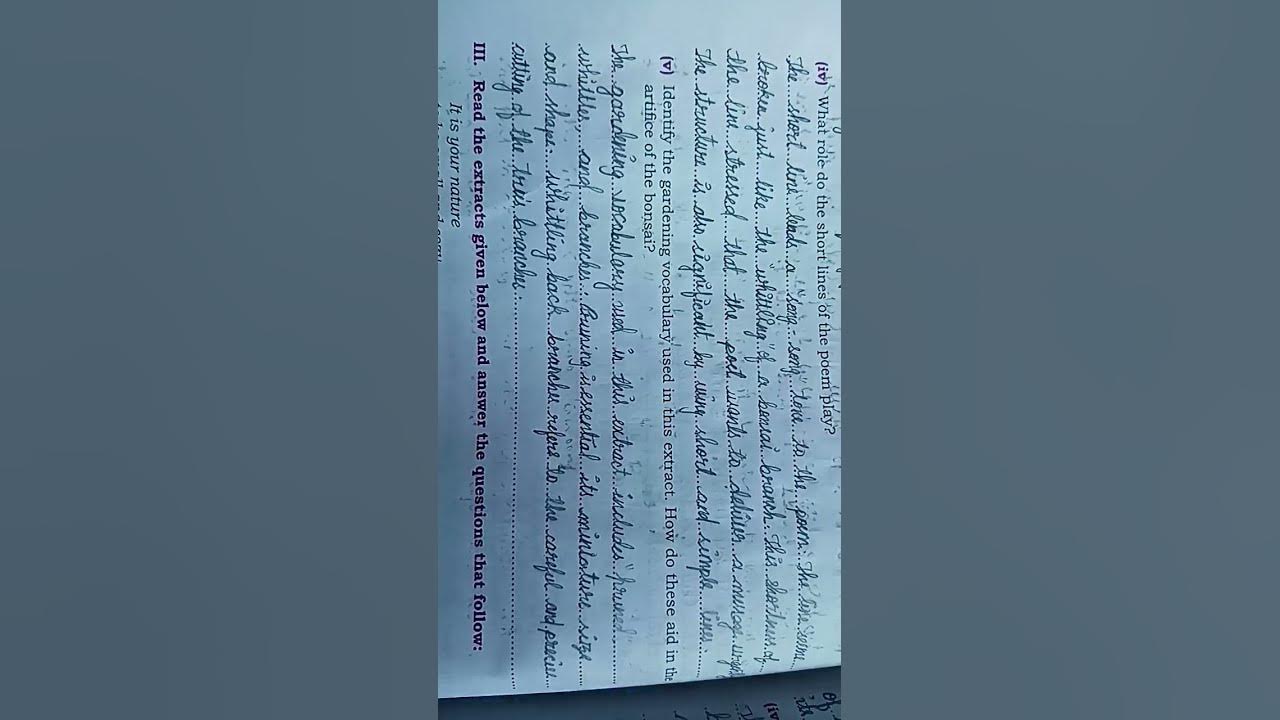 (iv) What role do the short lines of the poem play?
The short line lends a "song-song" tone to the poem. The line seems
broken just like the "whittling" of a bonsai branch. This shortness of
the line stressed that the poet wants to deliver a message
The structure is also significant by using short and simple lines.
(v) Identify the gardening vocabulary used in this extract. How do these aid in the
artifice of the bonsai?
The gardening vocabulary used in this extract includes "pruned
whittles and branches. Pruning is essential its miniature size
and shape. Whittling back branches refers to the careful and precise
cutting of the tree's branches.
III. Read the extracts given below and answer the questions that follow:
It is your nature
of
(iv